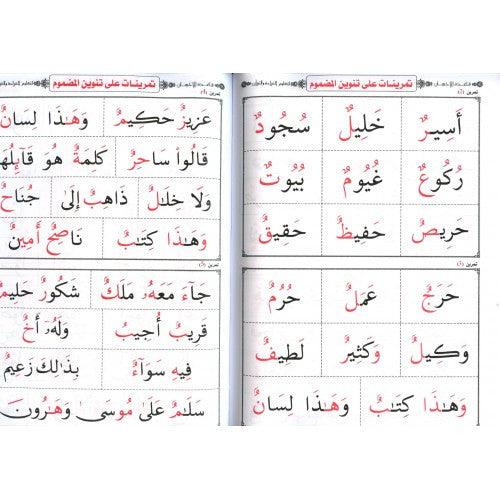 تمرينات على تنوين المضموم
تمرين (٢)
أَسِيرٌ خَلِيلٌ سُجُودٌ
رُكُوعٌ غُيُومٌ بُيُوتٌ
حَرِيصٌ حَفِيظٌ حَقِيقٌ
تمرين (٣)
حَرَجٌ عَمَلٌ حُرُمٌ
وَكِيلٌ وَكَثِيرٌ لَطِيفٌ
وَهَٰذَا كِتَٰبٌ وَهَٰذَا لِسَانٌ
تمرينات على تنوين المضموم
عَزِيزٌ حَكِيمٌ وَهَٰذَا لِسَانٌ
قَالُوا۟ سَاحِرٌ كَلِمَةٌ هُوَ قَآئِلُهَا
وَلَا خِلَٰلٌ ذَاهِبٌ إِلَىٰ جُنَاحٌ
وَهَٰذَا كِتَٰبٌ نَاصِحٌ أَمِينٌ
جَآءَ مَعَهُۥ مَلَكٌ شَكُورٌ حَلِيمٌ
قَرِيبٌ أُجِيبُ وَلَهُۥٓ أَخٌ
فِيهِ سَوَآءٌ بِذَٰلِكَ زَعِيمٌ
سَلَٰمٌ عَلَىٰ مُوسَىٰ وَهَٰرُونَ